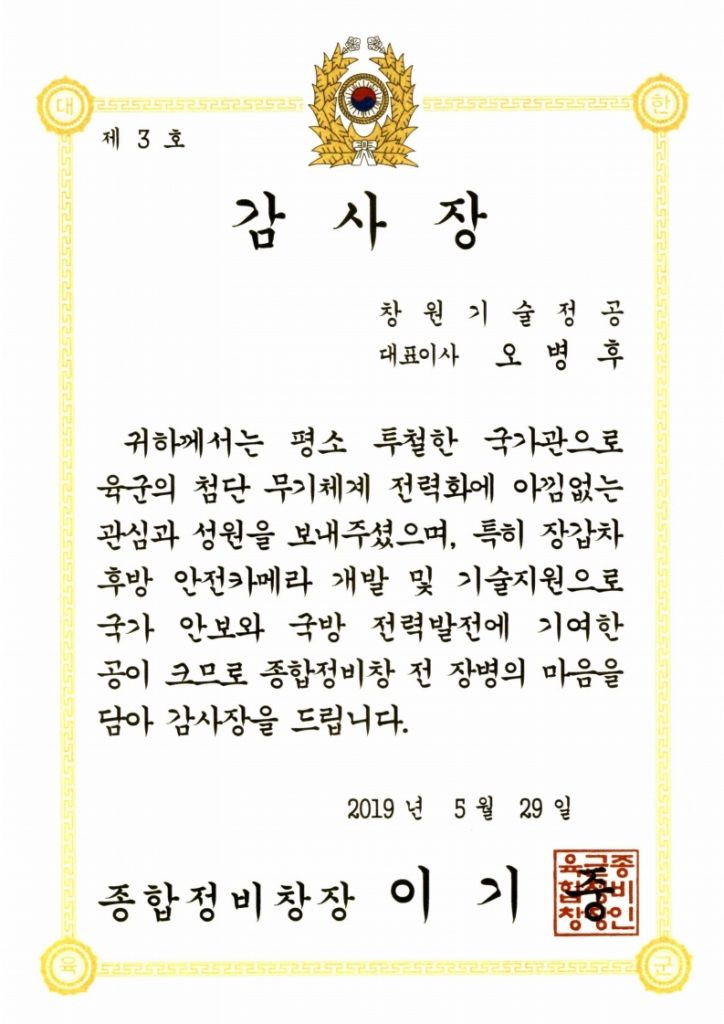 대
한
제 3 호
감 사 장
창원기술정공
대표이사 오 병 후
귀하께서는 평소 투철한 국가관으로
육군의 첨단 무기체계 전력화에 아낌없는
관심과 성원을 보내주셨으며, 특히 장갑차
후방 안전카메라 개발 및 기술지원으로
국가 안보와 국방 전력발전에 기여한
공이 크므로 종합정비창 전 장병의 마음을
담아 감사장을 드립니다.
2019 년 5 월 29 일
종합정비창장 이 기 중
육군종
합정비
창장인
육
군